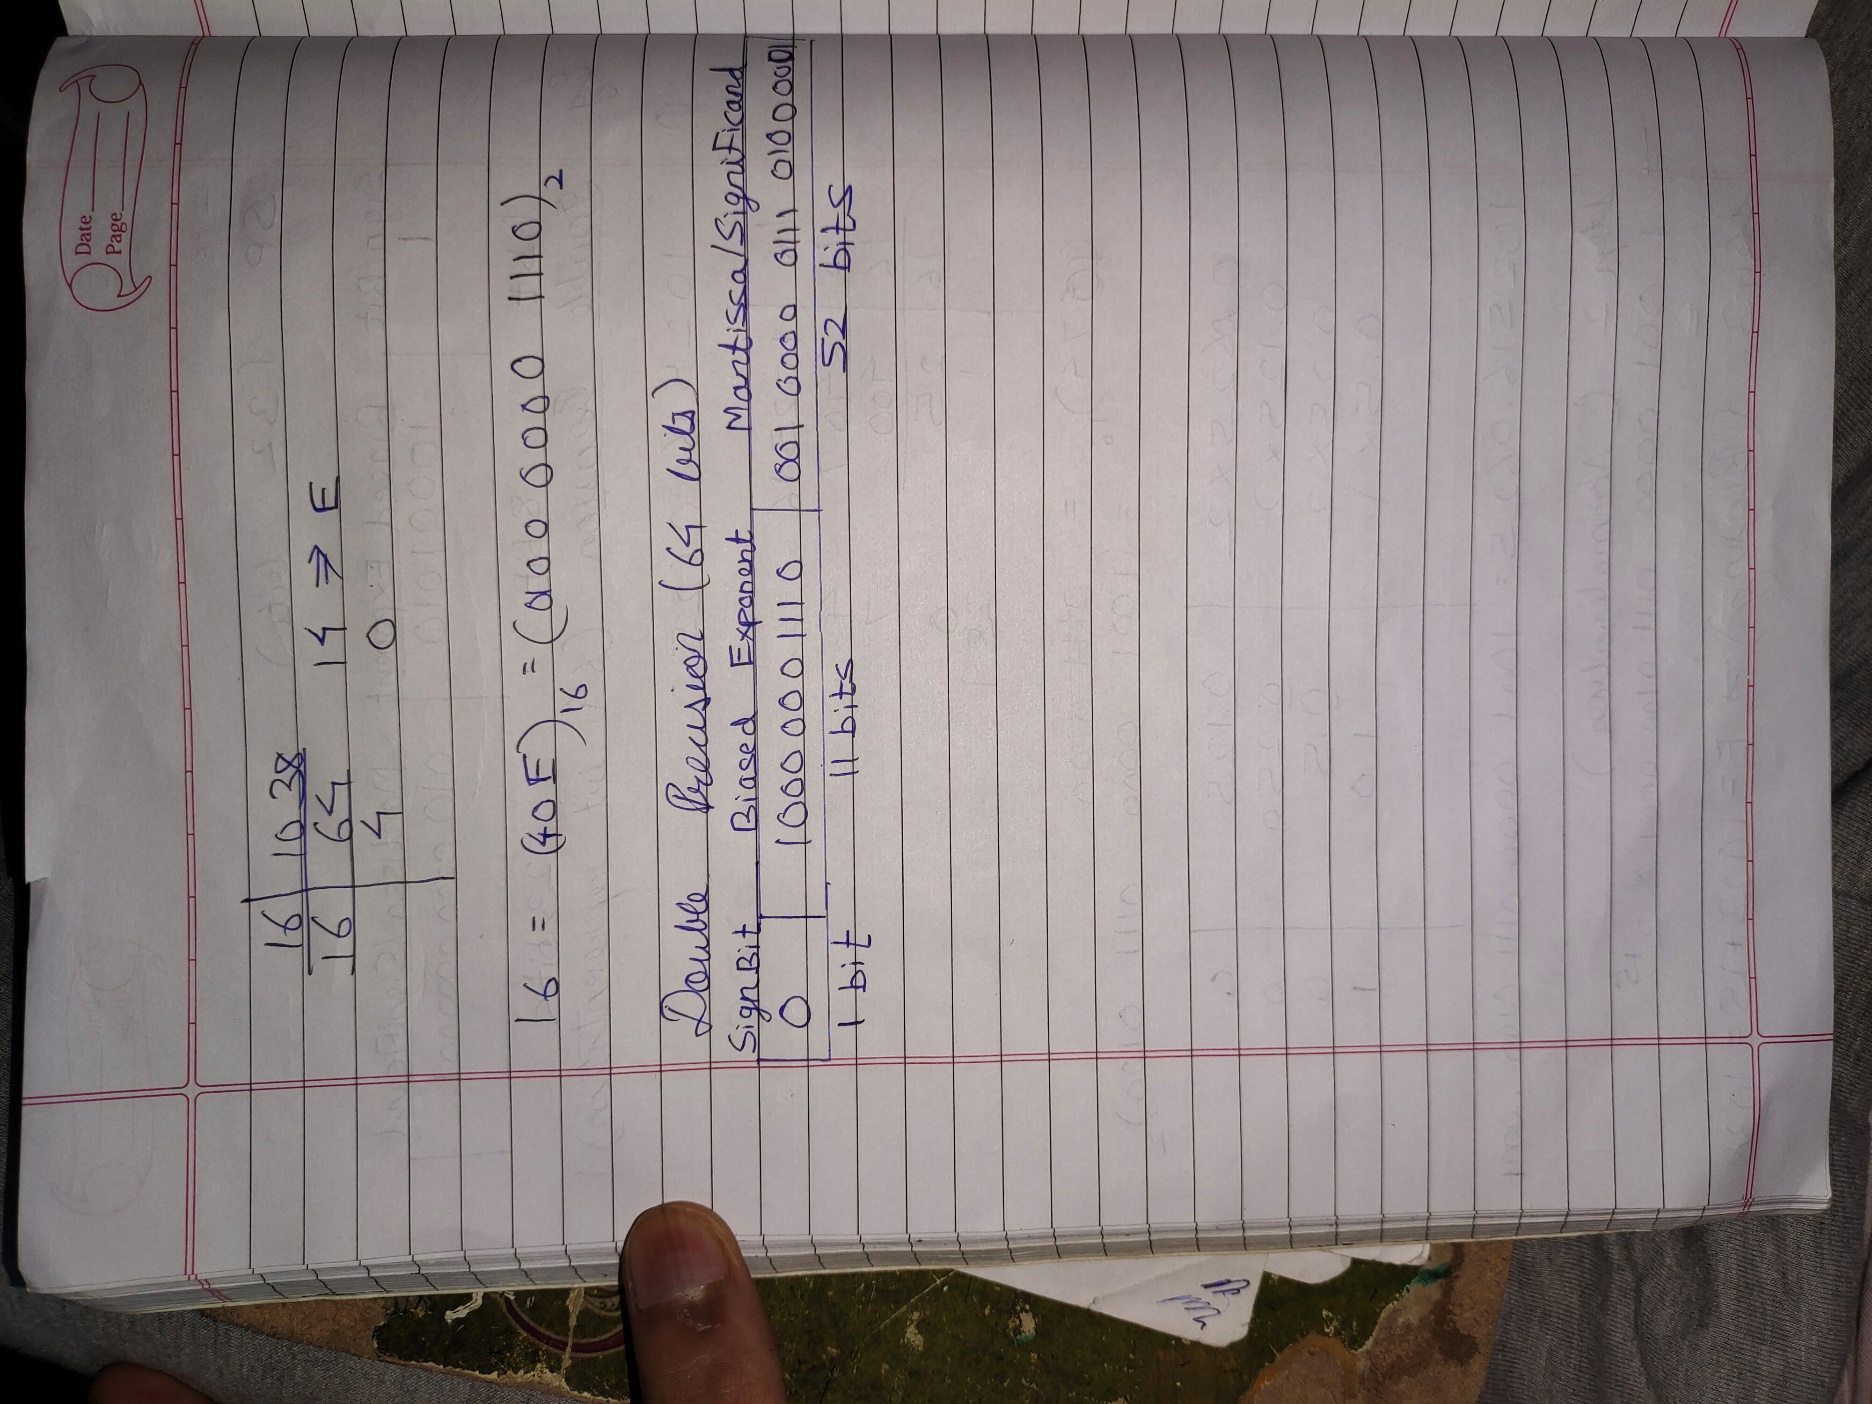 Date
Page
16 | 1038
16 | 64 14 ⇒ E
4 0
16 = (40E)₁₆ = (0100 0000 1110)₂
Double Precision (64 bits)
Sign Bit Biased Exponent Mantissa/Significand
0 | 10000001110 | 001 0000 0111 0100001
1 bit 11 bits 52 bits